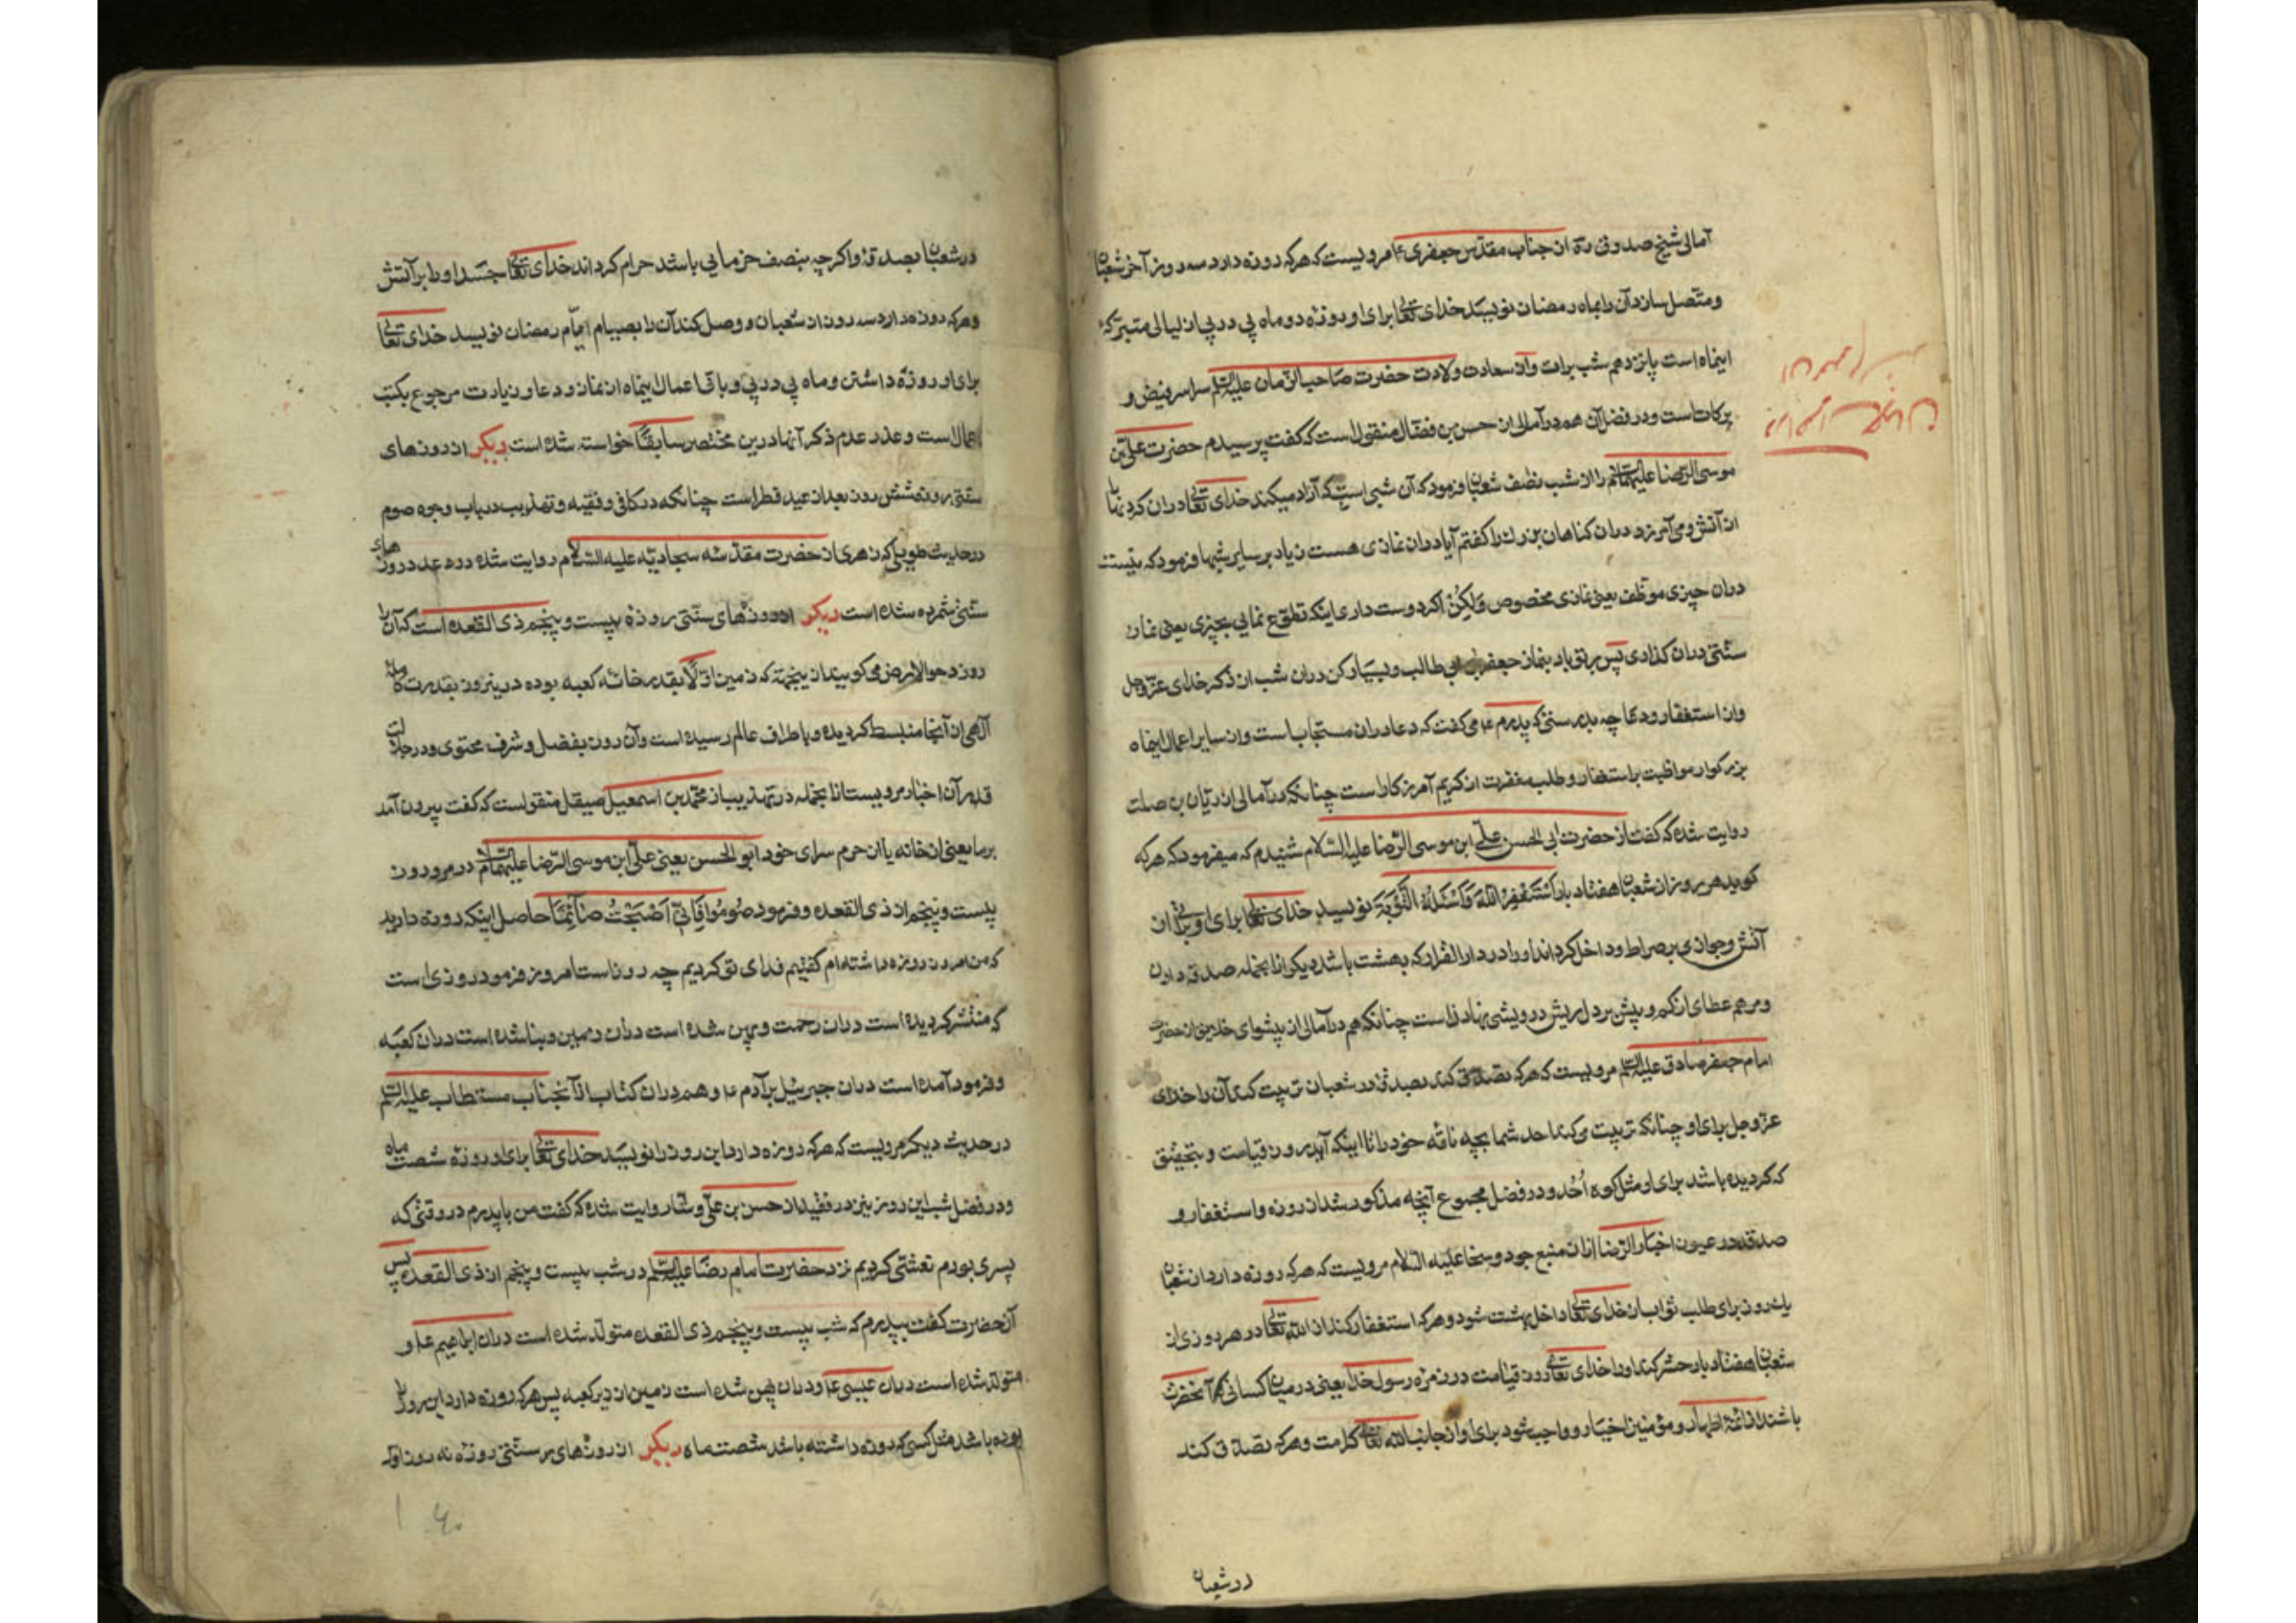 آمالی شیخ صدوق ره از جناب مقدّس جعفری ۴ مرویست که هرکه روزه دارد سه روز آخر شعبان
و متّصل سازد آن را بماه رمضان نویسد خدای تعالی برای او روزه دو ماه پی در پی از لیالی متبرّکهٔ
اینماه است پانزدهم شب برات و از سعادت ولادت حضرت صاحب الزّمان علیه السّلم سراسر فیض و
برکات است و در فضل آن هم در آمالی از حسن بن فضّال منقول است که گفت پرسیدم حضرت علیّ بن
موسی الرّضا علیهما السّلام را از شب نصف شعبان فرمود که آن شبی است که آزاد میکند خدای تعالی در آن گردنها را
از آتش و می آمرزد در آن گناهان بزرگ را گفتم آیا در آن نمازی هست زیاد بر سایر شبها فرمود که نیست
در آن چیزی موظّف یعنی نمازی مخصوص وَلکِنْ اگر دوست داری اینکه تطوّع نمایی بچیزی یعنی نماز
سنّتی در آن گذاری پس بر تو باد بنماز جعفر بن ابی طالب و بسیار کن در آن شب از ذکر خدای عزّ و جل
و از استغفار و دعا چه بدرستی که پدرم ع می گفت که دعا در آن مستجاب است و از سایر اعمال اینماه
بزرگوار مواظبت بر استغفار و طلب مغفرت از کریم آمرزگار است چنانکه در آمالی از ریّان بن صلت
روایت شده که گفت از حضرت ابی الحسن علیّ ابن موسی الرّضا علیه السّلام شنیدم که میفرمود که هرکه
گوید هر روز از شعبان هفتاد بار اَسْتَغْفِرُ اللّٰهَ وَ اَسْئَلُهُ التَّوْبَةَ نویسد خدای تعالی برای او براتی از
آتش و جوازی بر صراط و داخل گرداند او را در دار القرار که بهشت باشد دیگر از آنجمله صدقه دادن
و مرهم عطای از کم و بیش بر دل ریش درویشی نهادن است چنانکه هم در آمالی از پیشوای خلایق از حضرت
امام جعفر صادق علیه السّلم مرویست که هرکه تصدّق کند بصدقه در شعبان تربیت کند آن را خدای
عزّ و جل برای او چنانکه تربیت می کند احد شما بچه ناقه خود را تا اینکه آید روز قیامت و بتحقیق
که گردیده باشد برای او مثل کوه اُحُد و در فضل مجموع آنچه مذکور شد از روزه و استغفار و
صدقه در عیون اخبار الرّضا از آن منبع جود و سخا علیه السّلام مرویست که هرکه روزه دارد از شعبان
یک روز برای طلب ثواب از خدای تعالی داخل بهشت شود و هرکه استغفار کند از اللّٰه تعالی در هر روزی از
شعبان هفتاد بار حشر کند او را خدای تعالی روز قیامت در زمره رسول خدا یعنی در میان کسانی که با آنحضرت
باشند از ائمّهٔ اطهار و مؤمنین اخیار و واجب شود برای او از جانب اللّٰه تعالی کرامت و هرکه تصدّق کند
در شعبان
در شعبان بصدقه و اگرچه بنصف خرمایی باشد حرام گرداند خدای تعالی جسد او را بر آتش
و هرکه روزه دارد سه روز از شعبان و وصل کند آن را بصیام ایّام رمضان نویسد خدای تعالی
برای او روزه داشتن دو ماه پی در پی و باقی اعمال اینماه از نماز و دعا و زیارت مرجوع بکتب
اعمال است و عذر عدم ذکر آنها درین مختصر سابقًا خواسته شده است دیگر از روزهای
سنّتی روزه شش روز بعد از عید فطر است چنانکه در کافی و فقیه و تهذیب در باب وجوه صوم
در حدیث طویلی که زهری از حضرت مقدّسه سجادیّه علیه السّلام روایت شده در عدد روزهای
سنّتی شمرده شده است دیگر از روزهای سنّتی روزه بیست و پنجم ذی القعده است که آن را
روز دحو الارض می گویند از اینجهة که زمین اوّلًا بقدر خانه کعبه بوده درینروز بقدرت کامله
آلهی از آنجا منبسط گردیده و باطراف عالم رسیده است و آن روز بفضل و شرف محتوی و در جلالت
قدر آن اخبار مرویست از آنجمله در تهذیب از محمّد بن اسمعیل صیقل منقول است که گفت بیرون آمد
بر ما یعنی از خانه یا از حرم سرای خود ابو الحسن یعنی علیّ ابن موسی الرّضا علیهما السّلام در مرو روز
بیست و پنجم از ذی القعده و فرمود صُومُوا فَاِنّی اَصْبَحْتُ صَائِمًا حاصل اینکه روزه دارید
که من امروز روزه داشته ام گفتیم فدای تو گردیم چه روز است امروز فرمود روزی است
که منتشر گردیده است در آن رحمت و پهن شده است در آن زمین و بنا شده است در آن کعبه
و فرود آمده است در آن جبرئیل بر آدم ع و هم در آن کتاب از آنجناب مستطاب علیه السّلم
در حدیث دیگر مرویست که هرکه روزه دارد این روز را نویسد خدای تعالی برای او روزه شصت ماه
و در فضل شب این روز نیز در فقیه از حسن بن علیّ وشّا روایت شده که گفت من با پدرم در وقتی که
پسری بودم تعشّی کردیم نزد حضرت امام رضا علیه السّلم در شب بیست و پنجم از ذی القعده پس
آنحضرت گفت بپدرم که شب بیست و پنجم ذی القعده متولّد شده است در آن ابراهیم ع و
متولّد شده است در آن عیسی ع و در آن پهن شده است زمین از زیر کعبه پس هرکه روزه دارد این روز را
بوده باشد مثل کسی که روزه داشته باشد شصت ماه دیگر از روزهای سنّتی روزه نه روز اول